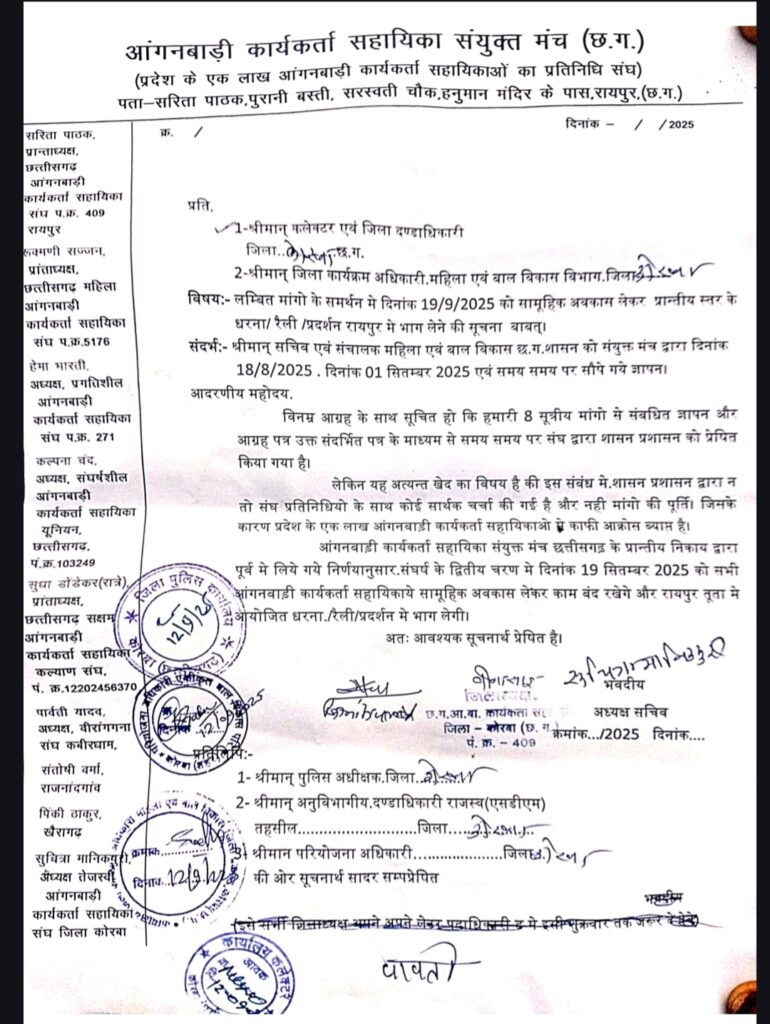 आंगनबाड़ी कार्यकर्ता सहायिका संयुक्त मंच (छ.ग.)
(प्रदेश के एक लाख आंगनबाड़ी कार्यकर्ता सहायिकाओं का प्रतिनिधि संघ)
पता–सरिता पाठक,पुरानी बस्ती, सरस्वती चौक,हनुमान मंदिर के पास,रायपुर,(छ.ग.)
क्र. /
दिनांक – / /2025
सरिता पाठक,
प्रान्ताध्यक्ष,
छत्तीसगढ़
आंगनबाड़ी
कार्यकर्ता सहायिका
संघ प.क्र. 409
रायपुर
रूक्मणी सज्जन,
प्रांताध्यक्ष,
छत्तीसगढ़ महिला
आंगनबाड़ी
कार्यकर्ता सहायिका
संघ प.क्र.5176
हेमा भारती,
अध्यक्ष, प्रगतिशील
आंगनबाड़ी
कार्यकर्ता सहायिका
संघ प.क्र. 271
कल्पना चंद,
अध्यक्ष, संघर्षशील
आंगनबाड़ी
कार्यकर्ता सहायिका
यूनियन,
छत्तीसगढ़,
पं.क्र.103249
सुधा डोंडेकर(रात्रे),
प्रांताध्यक्ष,
छत्तीसगढ़ सक्षम
आंगनबाड़ी
कार्यकर्ता सहायिका
कल्याण संघ,
पं. क्र.12202456370
पार्वती यादव,
अध्यक्ष, वीरांगगना
संघ कबीरघाम,
संतोषी वर्मा,
राजनांदगांव
पिंकी ठाकुर,
खैरागढ़
सुचित्रा मानिकपुरी,
अध्यक्ष तेजस्वी
आंगनबाड़ी
कार्यकर्ता सहायिका
संघ जिला कोरबा
प्रति,
1-श्रीमान् कलेक्टर एवं जिला दण्डाधिकारी
जिला..कोरबा.छ.ग.
2-श्रीमान् जिला कार्यक्रम अधिकारी.महिला एवं बाल विकास विभाग,जिला कोरबा
विषय:- लम्बित मांगो के समर्थन मे दिनांक 19/9/2025 को सामूहिक अवकास लेकर प्रान्तीय स्तर के
धरना/ रैली /प्रदर्शन रायपुर मे भाग लेने की सूचना बाबत्।
संदर्भ:- श्रीमान् सचिव एवं संचालक महिला एवं बाल विकास छ.ग.शासन को संयुक्त मंच द्वारा दिनांक
18/8/2025 . दिनांक 01 सितम्बर 2025 एवं समय समय पर सौपे गये ज्ञापन।
आदरणीय महोदय.
विनम्र आग्रह के साथ सूचित हो कि हमारी 8 सूत्रीय मांगो से संबधित ज्ञापन और
आग्रह पत्र उक्त संदर्भित पत्र के माध्यम से समय समय पर संघ द्वारा शासन प्रशासन को प्रेषित
किया गया है।
लेकिन यह अत्यन्त खेद का विषय है की इस संबंध मे.शासन प्रशासन द्वारा न
तो संघ प्रतिनिधियो के साथ कोई सार्थक चर्चा की गई है और नही मांगो की पूर्ति। जिसके
कारण प्रदेश के एक लाख आंगनबाड़ी कार्यकर्ता सहायिकाओ मे काफी आक्रोस ब्याप्त है।
आंगनबाड़ी कार्यकर्ता सहायिका संयुक्त मंच छत्तीसगढ़ के प्रान्तीय निकाय द्वारा
पूर्व मे लिये गये निर्णयानुसार.संघर्ष के द्वितीय चरण मे दिनांक 19 सितम्बर 2025 को सभी
आंगनबाड़ी कार्यकर्ता सहायिकाये सामूहिक अवकास लेकर काम बंद रखेगे और रायपुर तूता मे
आयोजित धरना./रैली/प्रदर्शन मे भाग लेगी।
अतः आवश्यक सूचनार्थ प्रेषित है।
भवदीय
जिलाध्यक्ष
छ.ग.आ.बा. कार्यकर्ता
अध्यक्ष सचिव
जिला – कोरबा (छ.ग.)
क्रमांक.../2025 दिनांक....
पं. क्र. – 409
प्रतिलिपि:-
1- श्रीमान् पुलिस अधीक्षक.जिला.कोरबा
2- श्रीमान् अनुविभागीय.दण्डाधिकारी राजस्व(एसडीएम)
तहसील...........................जिला....कोरबा..
3- श्रीमान परियोजना अधिकारी.....................जिला कोरबा
की ओर सूचनार्थ सादर सम्पप्रेषित
भवदीय
पावती
जिला पुलिस कार्यालय
कोरबा (छत्तीसगढ़)
12/9/25
दिनांक
क्रमांक
दिनांक 12/9/
कार्यालय कलेक्टर
आवक